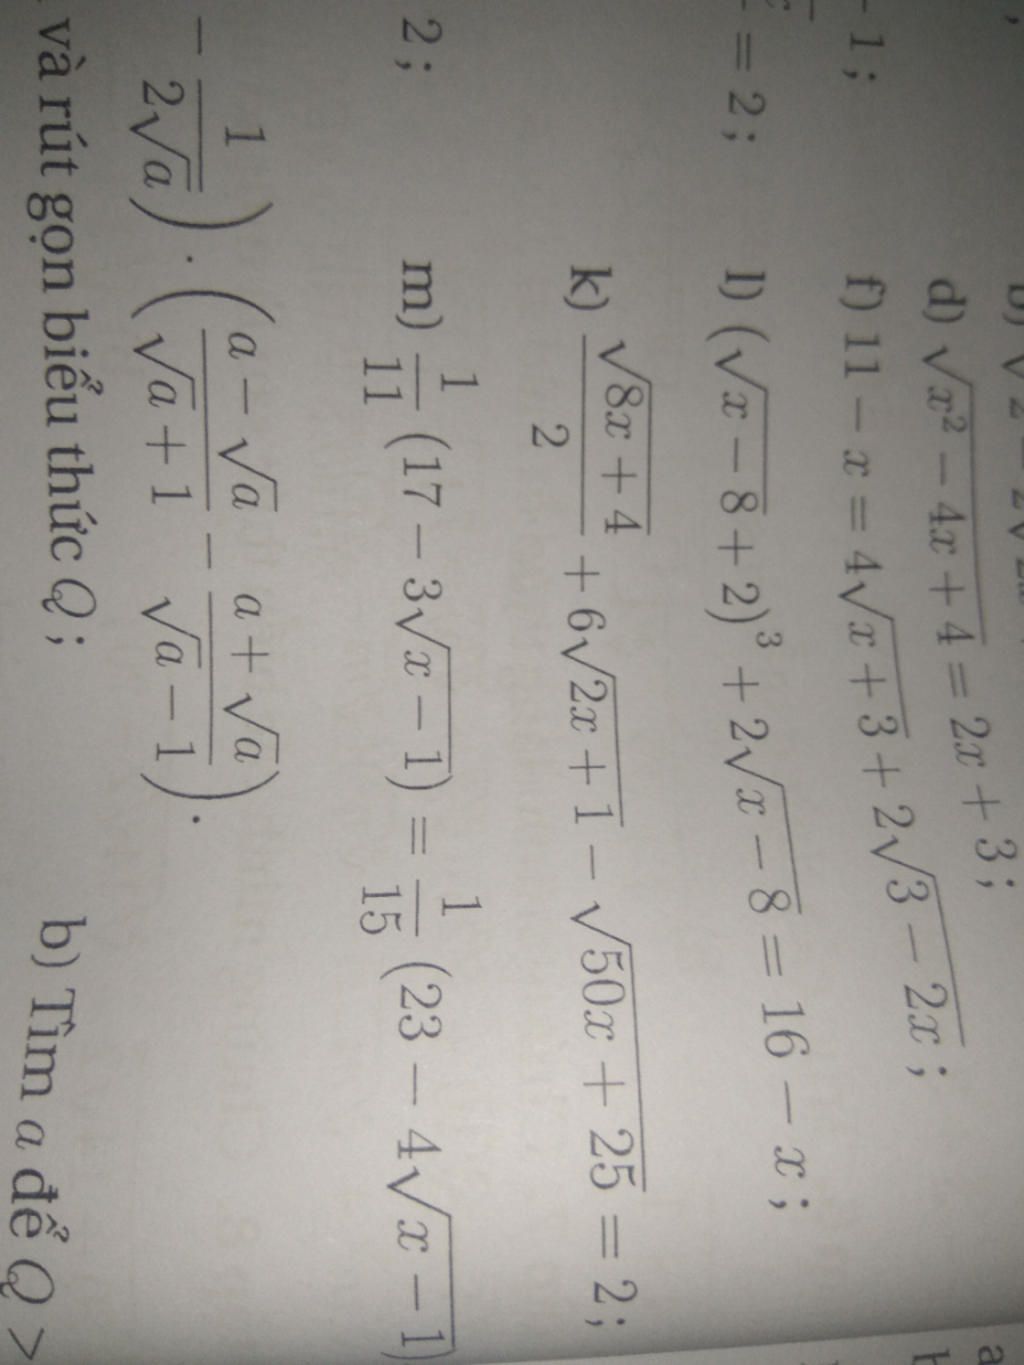 d) √(x² − 4x + 4) = 2x + 3 ;
− 1 ; f) 11 − x = 4√(x + 3) + 2√(3 − 2x) ;
= 2 ; l) (√(x − 8) + 2)³ + 2√(x − 8) = 16 − x ;
k) √(8x + 4)/2 + 6√(2x + 1) − √(50x + 25) = 2 ;
2 ; m) 1/11 (17 − 3√(x − 1)) = 1/15 (23 − 4√(x − 1))
− 1/(2√a)) · ((a − √a)/(√a + 1) − (a + √a)/(√a − 1)) .
và rút gọn biểu thức Q ; b) Tìm a để Q >